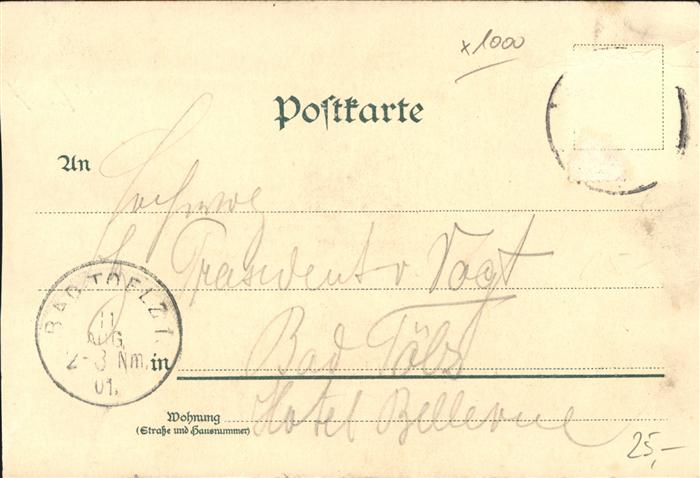 x1000
Postkarte
An
H Präsident v. Vogt
BAD TOELZ 1.
11
AUG.
2-3 Nm.
01.
in
Bad Tölz
Wohnung
(Straße und Hausnummer)
Hotel Bellevue
25,-